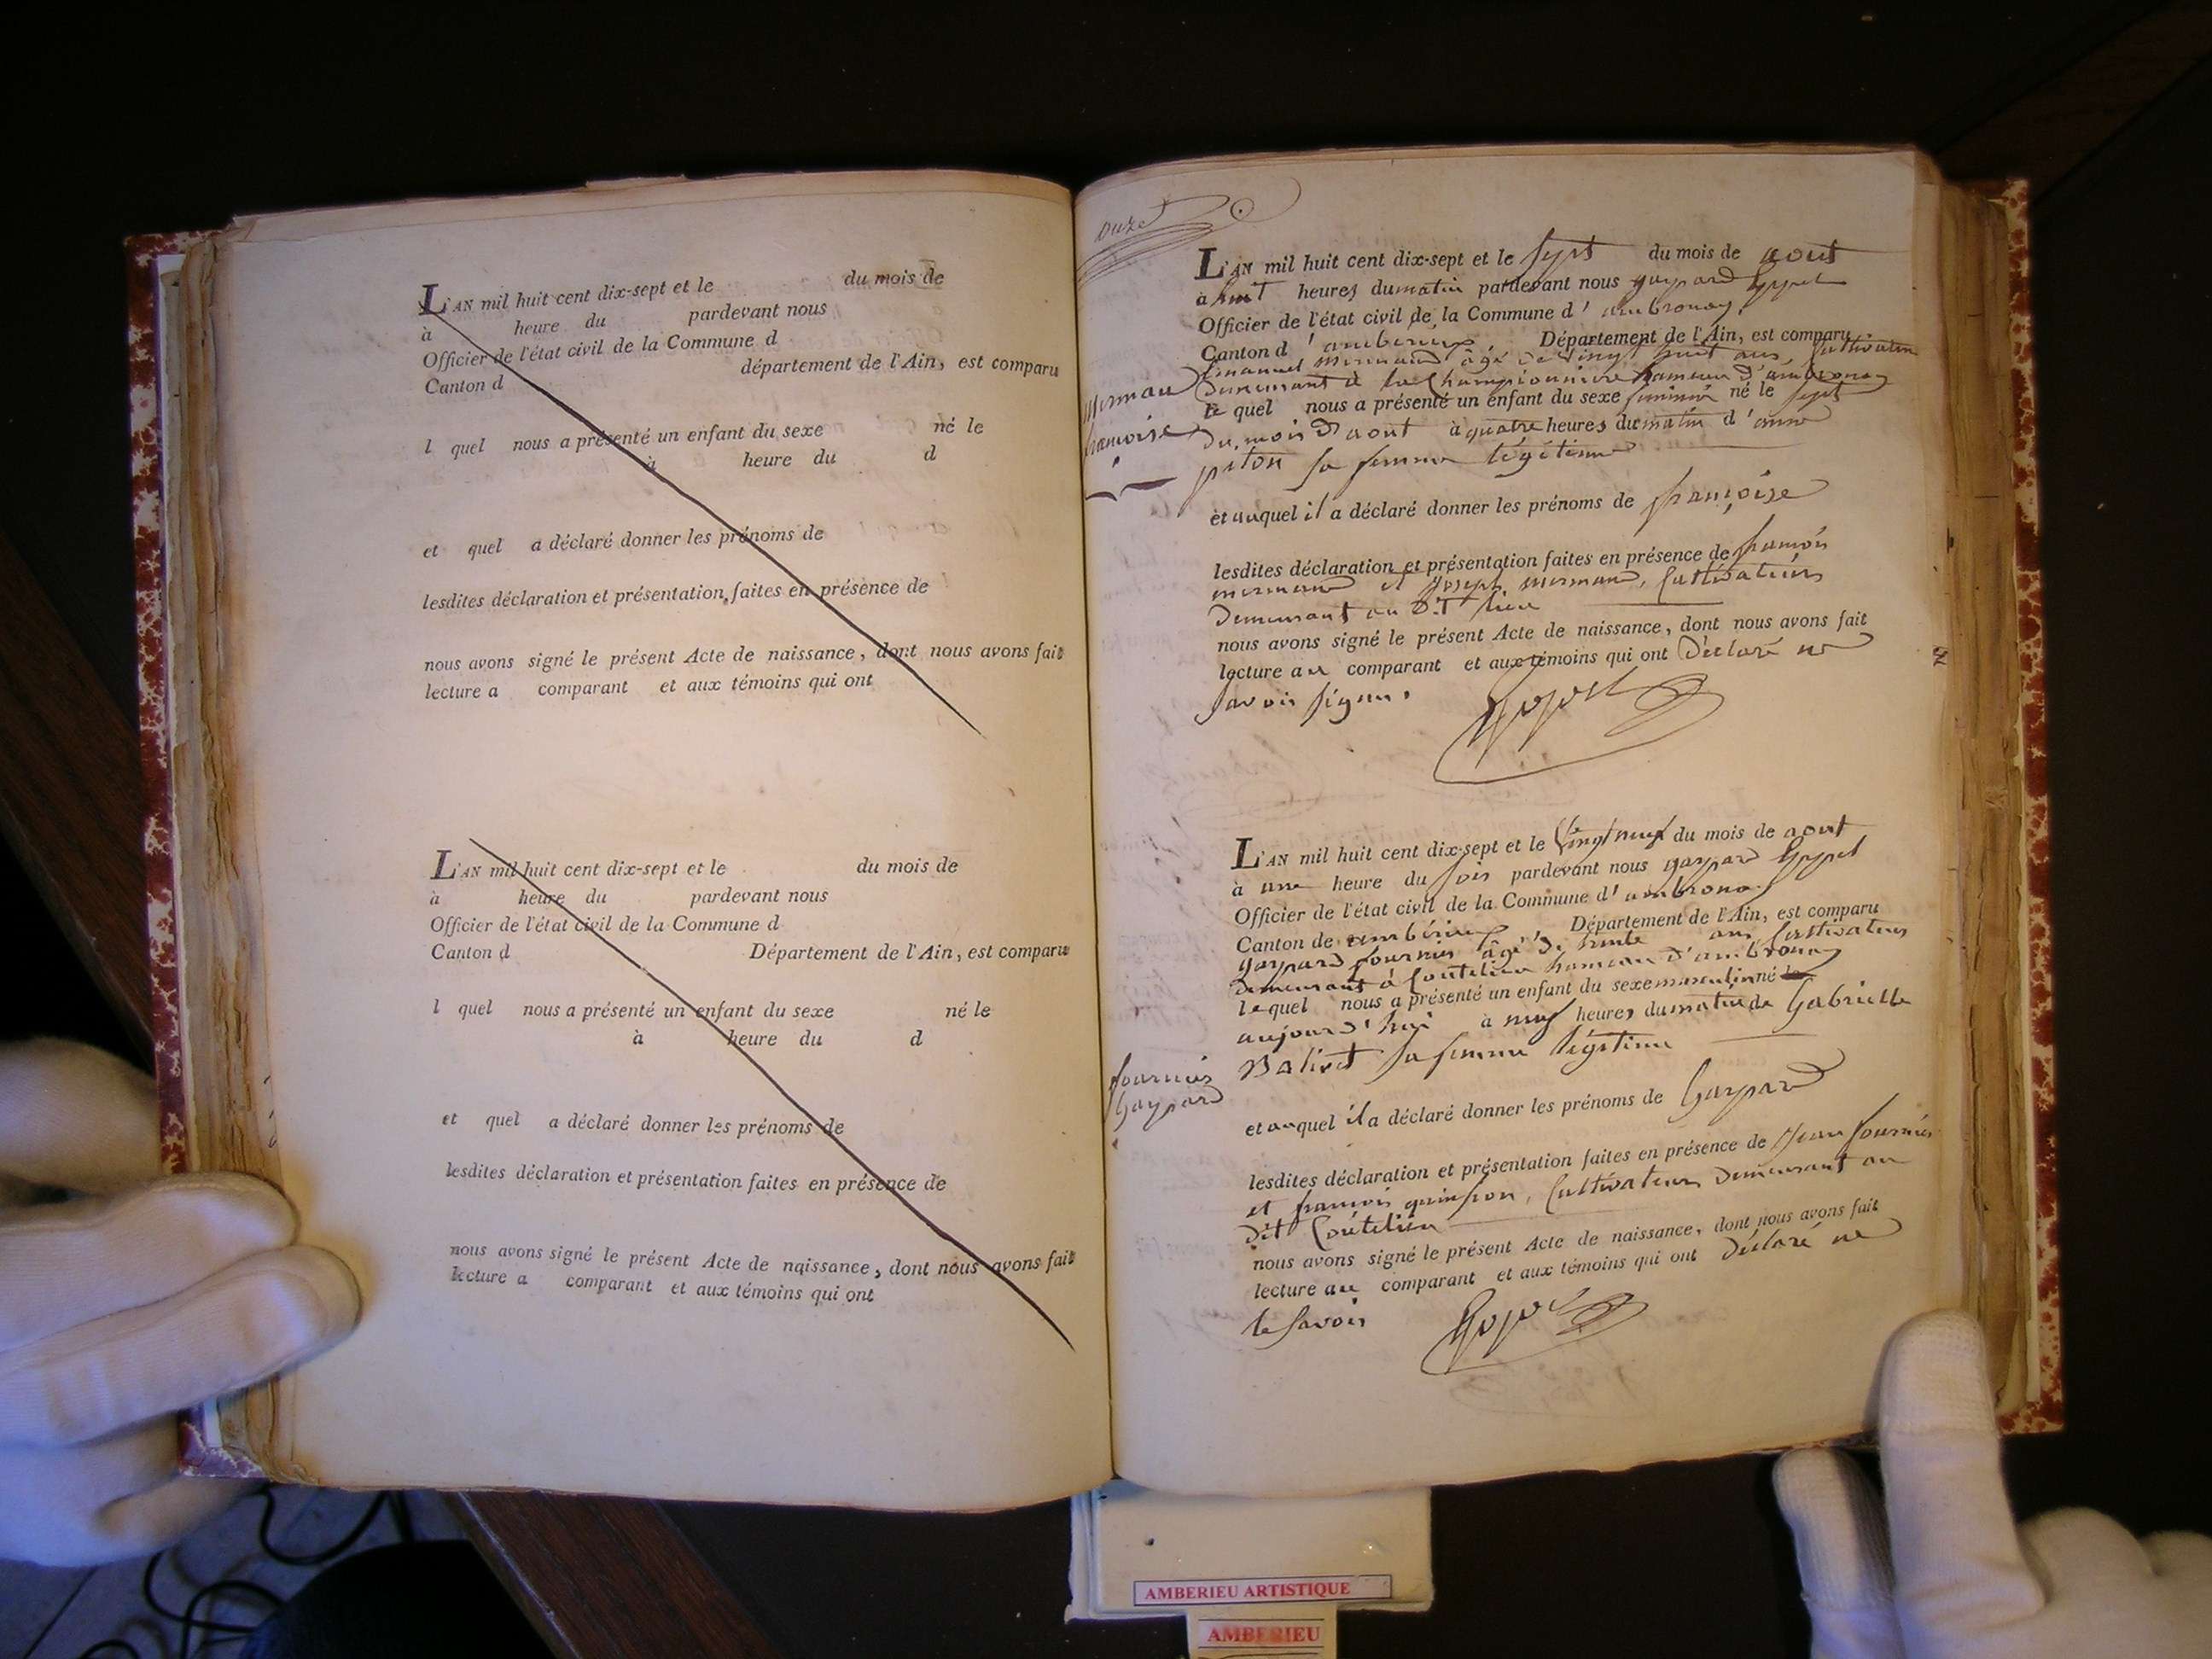 L'AN mil huit cent dix-sept et le du mois de
à heure du pardevant nous
Officier de l'état civil de la Commune d
Canton d département de l'Ain, est comparu
l quel nous a présenté un enfant du sexe né le
à heure du d
et quel a déclaré donner les prénoms de
lesdites déclaration et présentation faites en présence de
nous avons signé le présent Acte de naissance, dont nous avons fait
lecture a comparant et aux témoins qui ont
L'AN mil huit cent dix-sept et le du mois de
à heure du pardevant nous
Officier de l'état civil de la Commune d
Canton d Département de l'Ain, est comparu
l quel nous a présenté un enfant du sexe né le
à heure du d
et quel a déclaré donner les prénoms de
lesdites déclaration et présentation faites en présence de
nous avons signé le présent Acte de naissance, dont nous avons fait
lecture a comparant et aux témoins qui ont
onze
L'AN mil huit cent dix-sept et le sept du mois de aout
à huit heures du matin pardevant nous gaspard
Officier de l'état civil de la Commune d'ambronay
Canton d'amberieux Département de l'Ain, est comparu
Emanuel mermand âgé de vingt huit ans, Cultivateur
demeurant à la Championniere hameau d'ambronay
le quel nous a présenté un enfant du sexe feminin né le sept
du mois d'aout à quatre heures du matin d'anne
piton sa femme légitime
mermand
françoise
et auquel il a déclaré donner les prénoms de françoise
lesdites déclaration et présentation faites en présence de françois
mermand et joseph mermand, Cultivateurs
demeurant au dit lieu
nous avons signé le présent Acte de naissance, dont nous avons fait
lecture au comparant et aux témoins qui ont déclaré ne
savoir signer.
L'AN mil huit cent dix-sept et le Vingt neuf du mois de aout
à une heure du soir pardevant nous gaspard
Officier de l'état civil de la Commune d'ambronay
Canton de amberieux Département de l'Ain, est comparu
gaspard fournier âgé de trente ans Cultivateur
demeurant à Coutelieu hameau d'ambronay
lequel nous a présenté un enfant du sexe masculin né le
aujourd'hui à neuf heures du matin de Gabrielle
Balivet sa femme légitime
fournier
Gaspard
et auquel il a déclaré donner les prénoms de Gaspard
lesdites déclaration et présentation faites en présence de Jean fournier
et francois quinson, Cultivateurs demeurant au
dit Coutelieu
nous avons signé le présent Acte de naissance, dont nous avons fait
lecture au comparant et aux témoins qui ont déclaré ne
le savoir
AMBERIEU ARTISTIQUE
AMBERIEU